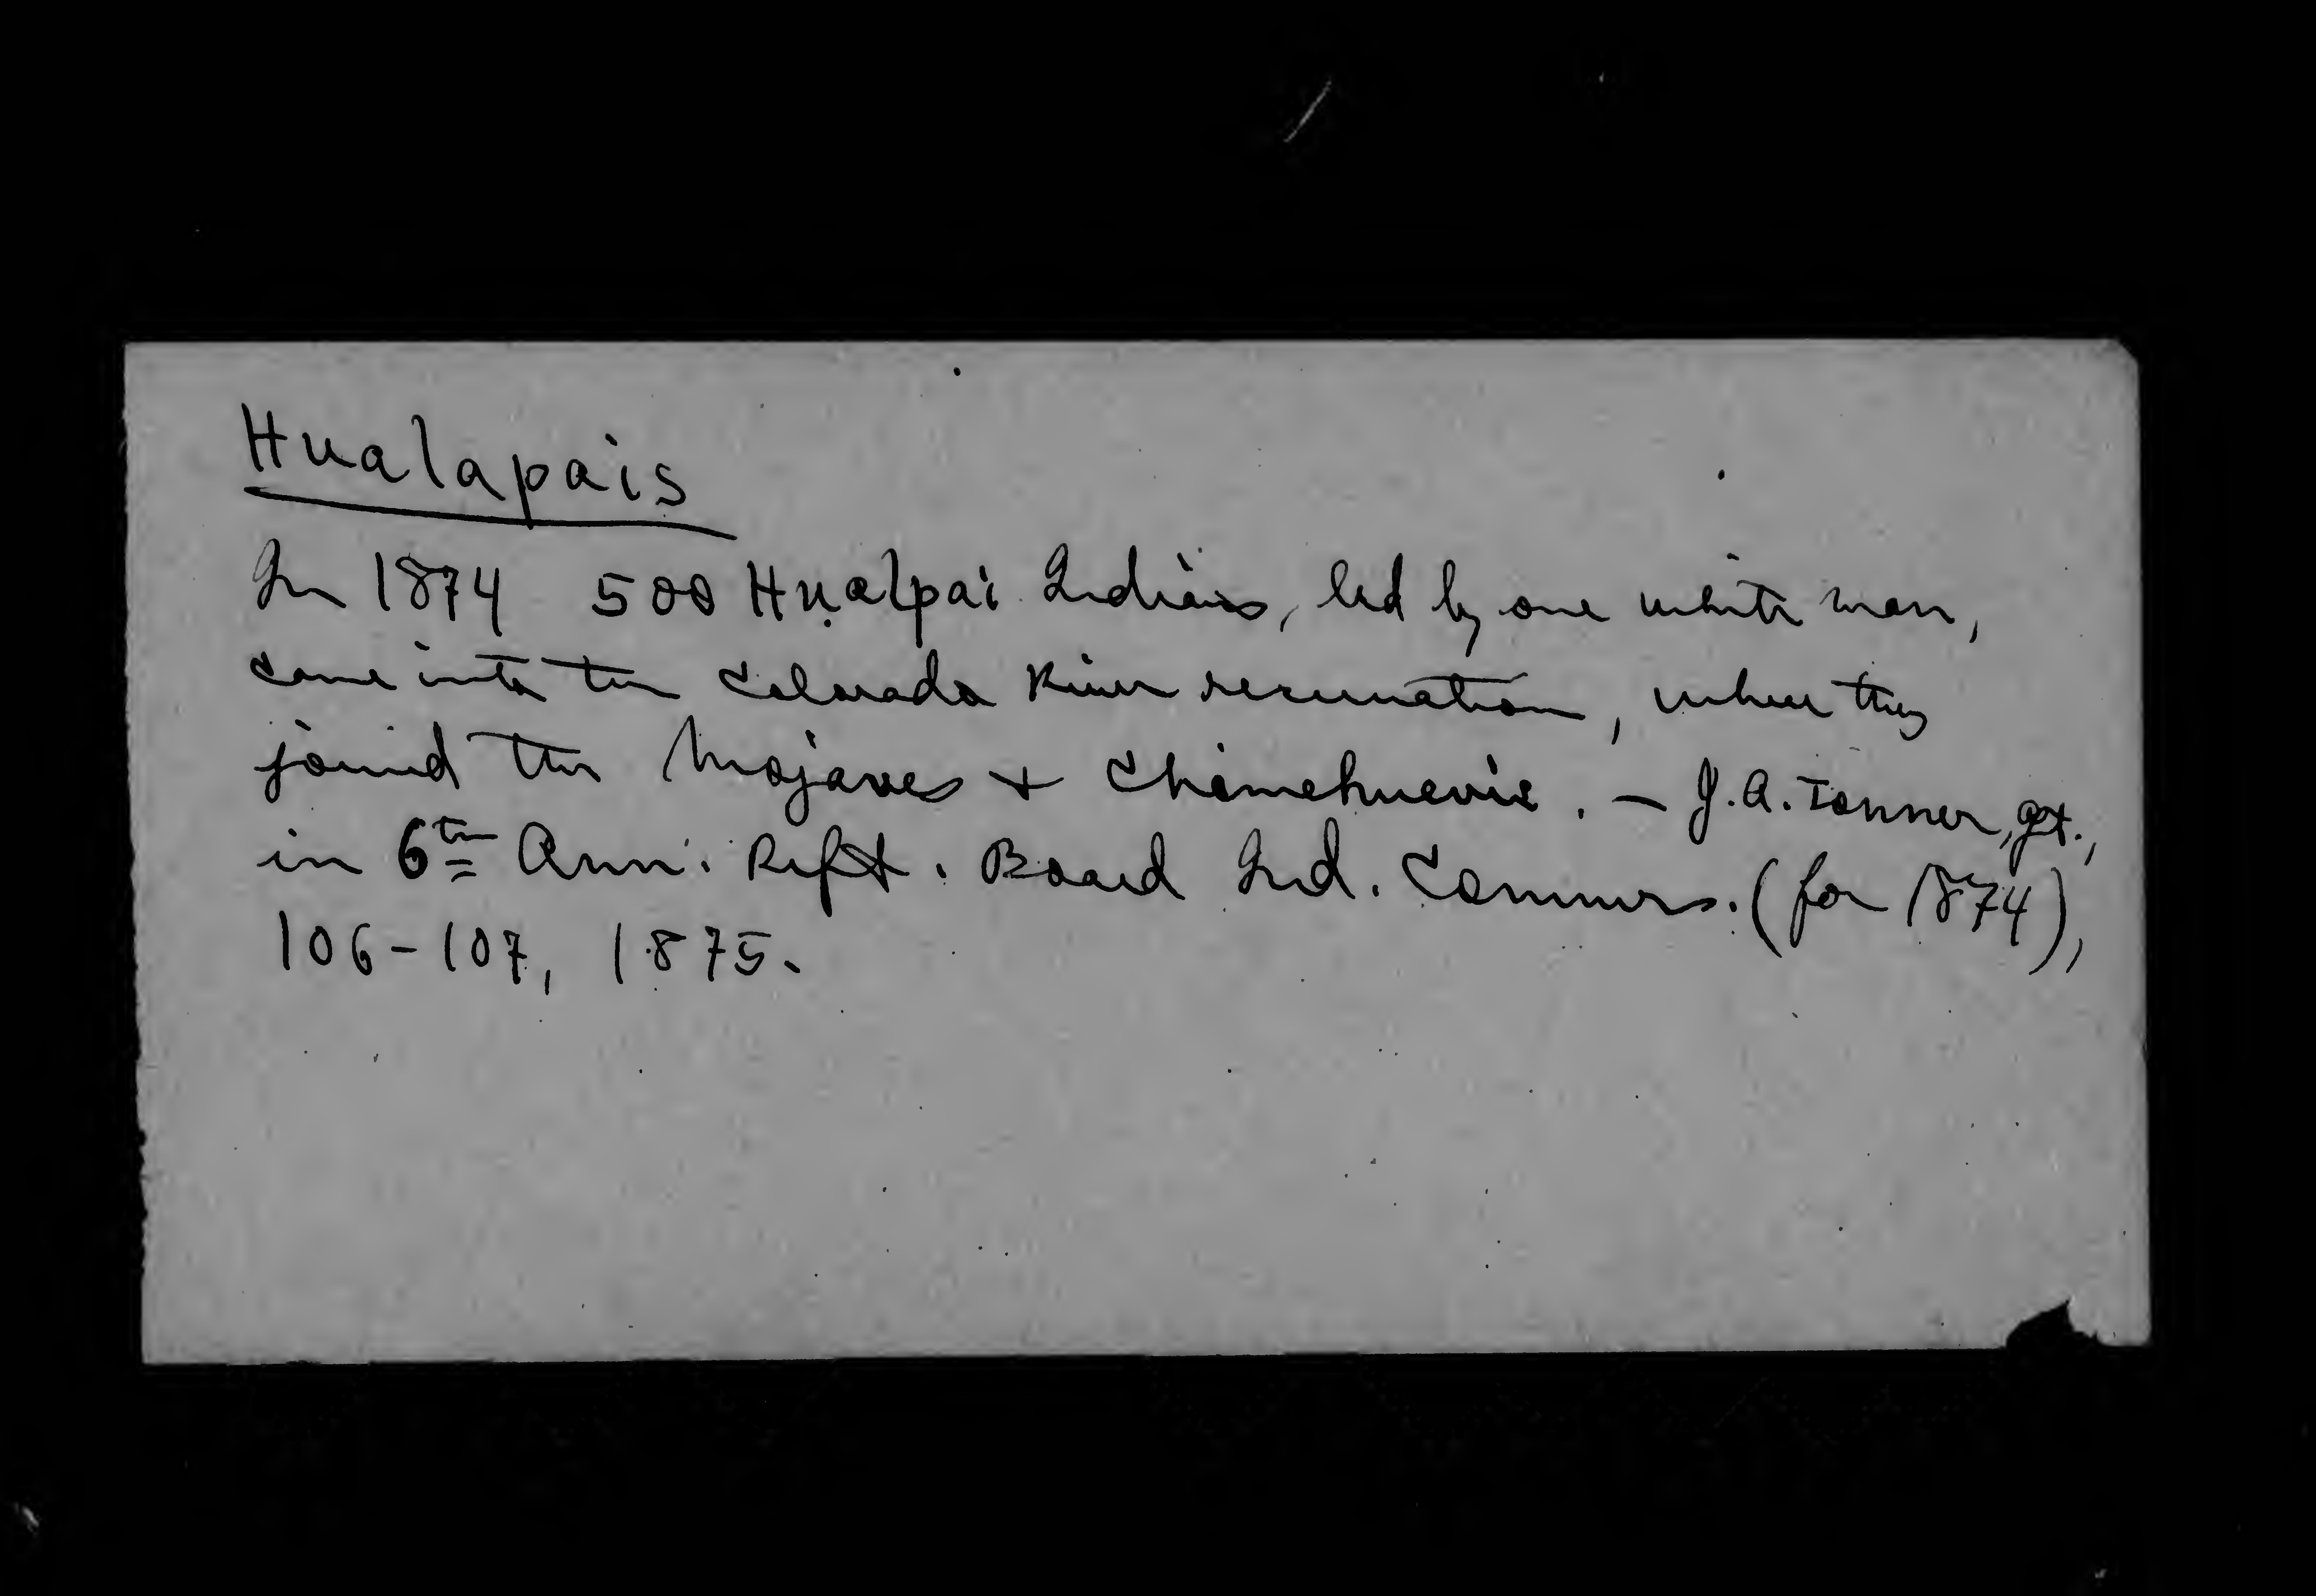 Hualapais
In 1874 500 Hualpai Indians, led by one white man,
came into the Colorado River reservation, where they
joined the Mojaves + Chimehuevie. — J.A. Tonner,
in 6th Ann. Rept. Board Ind. Commrs. (for 1874),
106-107, 1875.